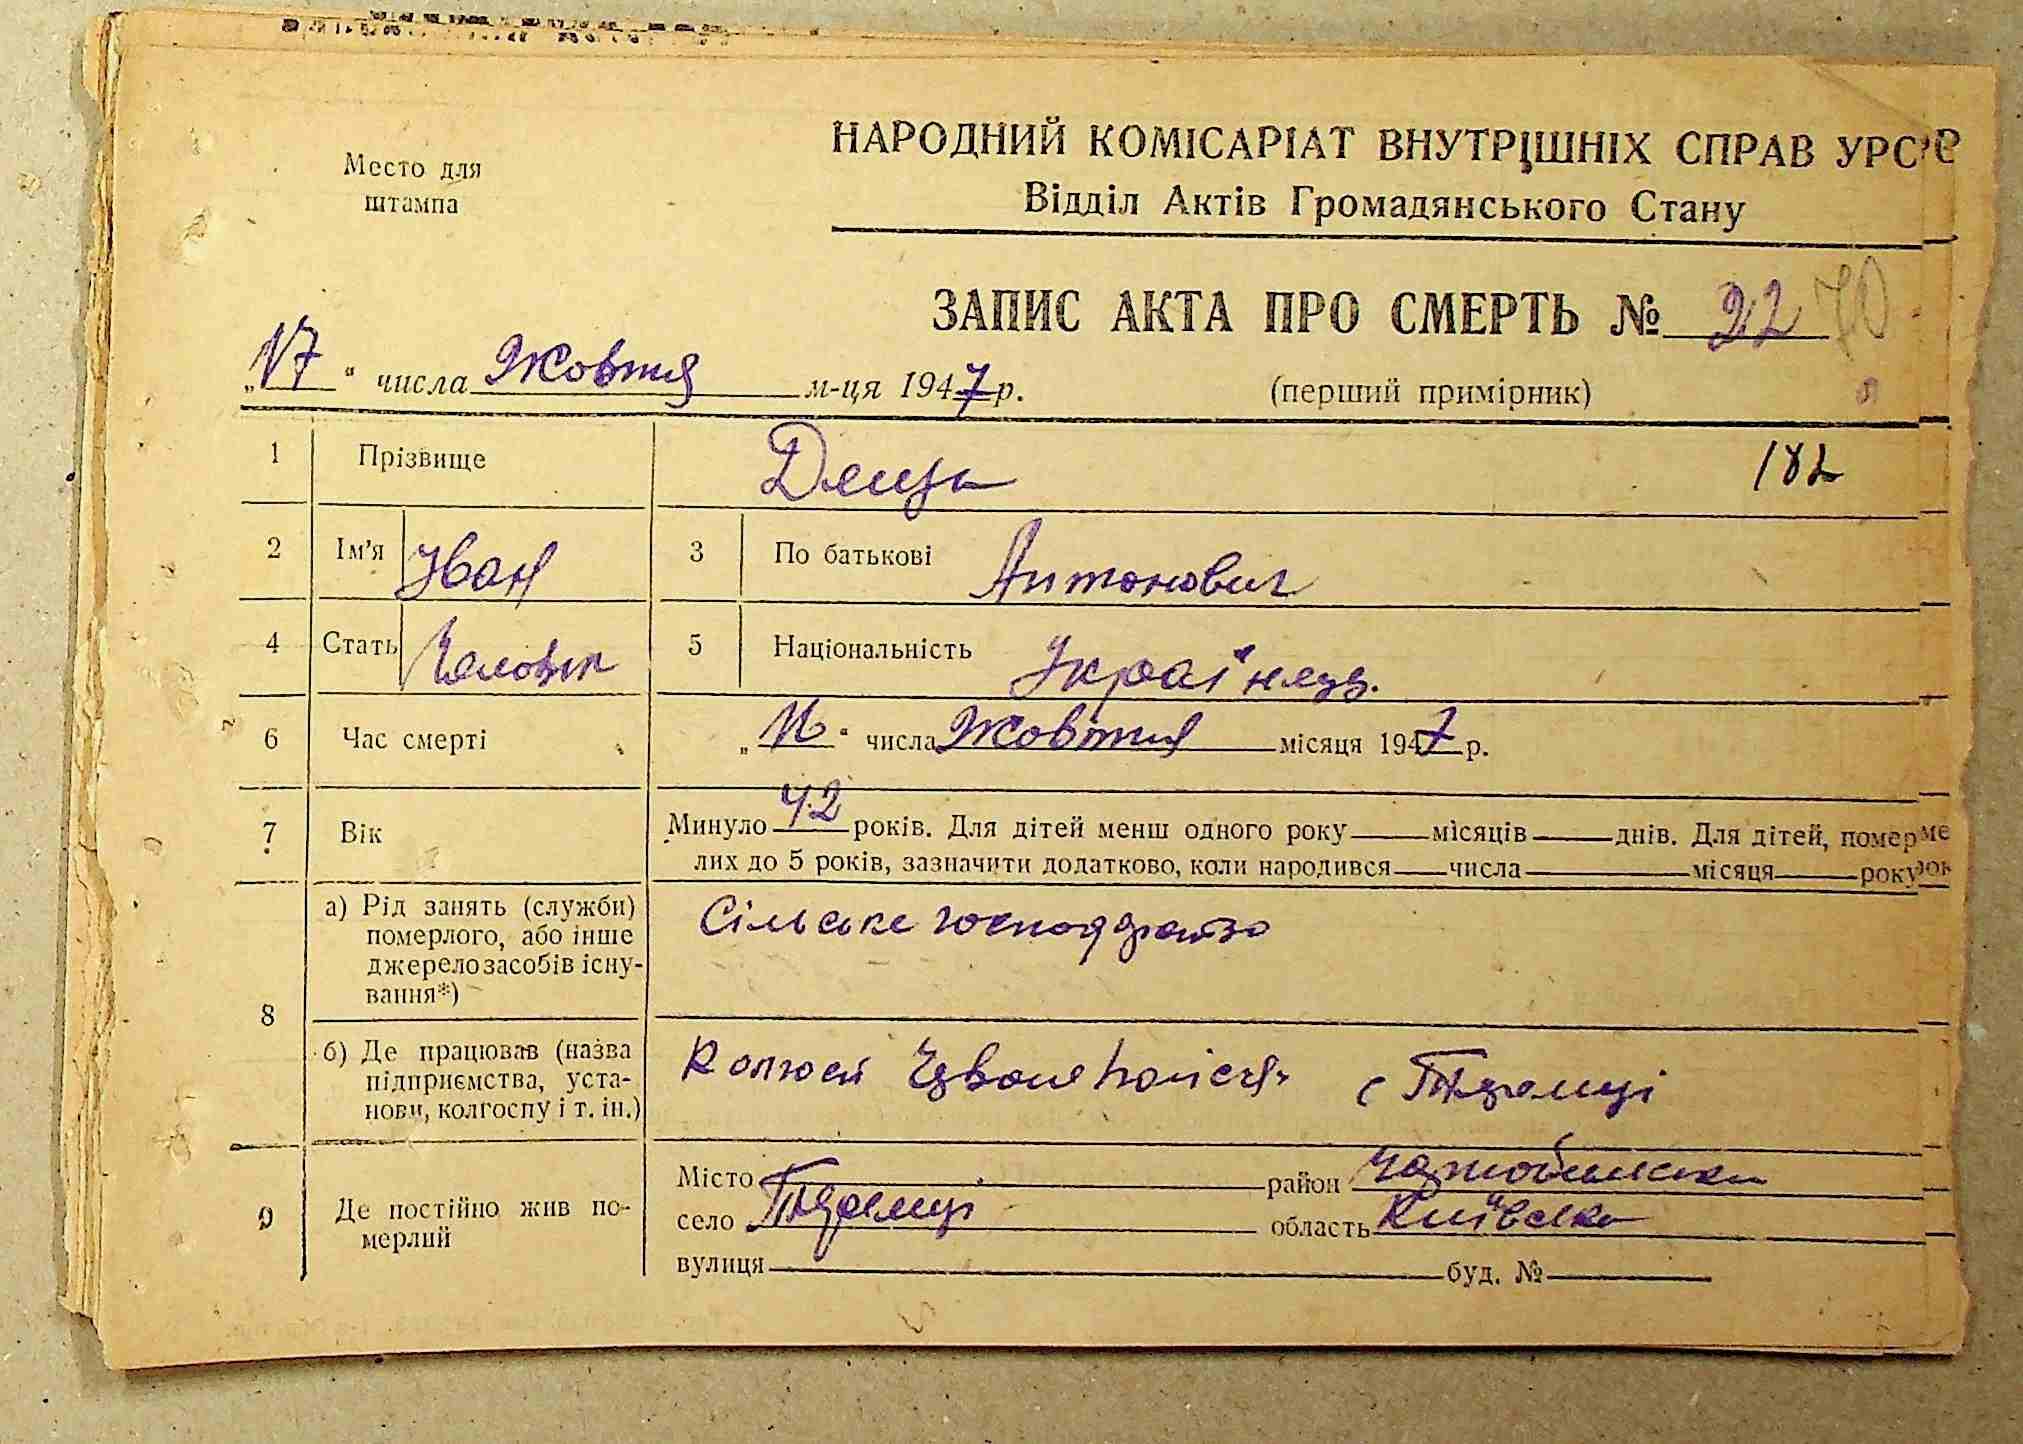 Место для
штампа
НАРОДНИЙ КОМІСАРІАТ ВНУТРІШНІХ СПРАВ УРСР
Відділ Актів Громадянського Стану
ЗАПИС АКТА ПРО СМЕРТЬ № 22 70
„17“ числа Жовтня м-ця 1947 р.
(перший примірник)
1 Прізвище 182
2 Ім'я Іван 3 По батькові Антонович
4 Стать Чоловік 5 Національність Українець.
6 Час смерті „16“ числа Жовтня місяця 1947 р.
7 Вік Минуло 42 років. Для дітей менш одного року місяців днів. Для дітей, помер
лих до 5 років, зазначити додатково, коли народився числа місяця року
8 а) Рід занять (служби)
померлого, або інше
джерело засобів існу-
вання*)
Сільське господарство
б) Де працював (назва
підприємства, уста-
нови, колгоспу і т. ін.)
Колгосп Червоне Полісся с Теремці
9 Де постійно жив по-
мерлий
Місто район Чорнобильськи
село Теремці область Київська
вулиця буд. №